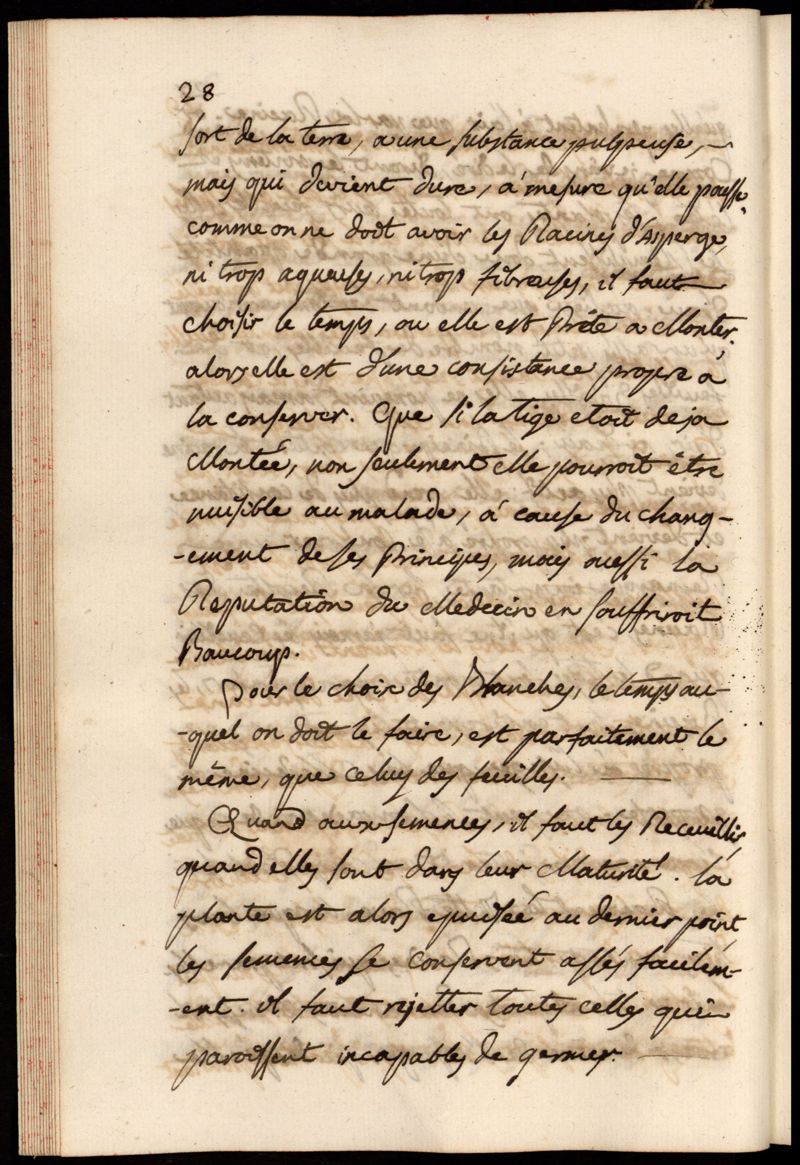 28
sort de la terre, a une substance pulpeuse,
mais qui devient dure, a' mesure qu'elle pousse,
comme on ne doit avoir les Racines d'Asperge,
ni trop aqueuses, ni trop fibreuses, il faut
choisir le temps, ou elle est Prête a Monter.
alors elle est d'une consistance propre à
la conserver. Que si la tige etoit deja
Montée, non seulement elle pourroit être
nuisible au malade, á cause du chang-
-ement de ses Principes, mais aussi la
Reputation du Medecin en souffriroit
Baucoup.
Pour le choix des Branches, le temps au-
-quel on doit le faire, est parfaitement le
même, que celuy des feuilles.
Quand aux semences, il faut les Receuillir
quand elles sont dans leur Maturité. la
plante est alors epuisée au dernier point
les semences se conservent assés facilem-
-ent. il faut rejetter toutes celles qui
paroissent incapables de germer.